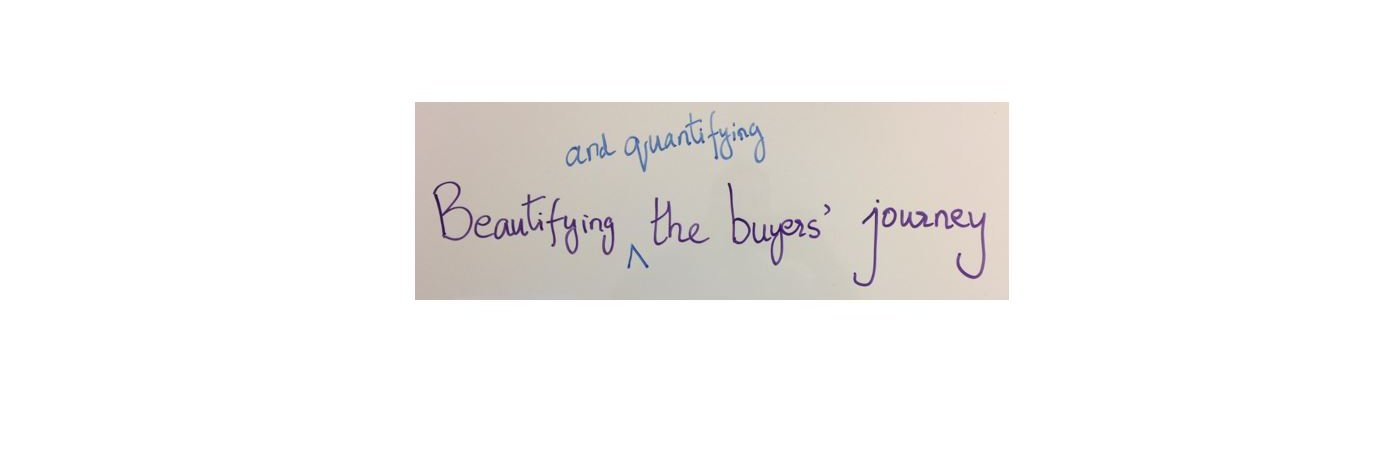 and quantifying
Beautifying ^ the buyers' journey